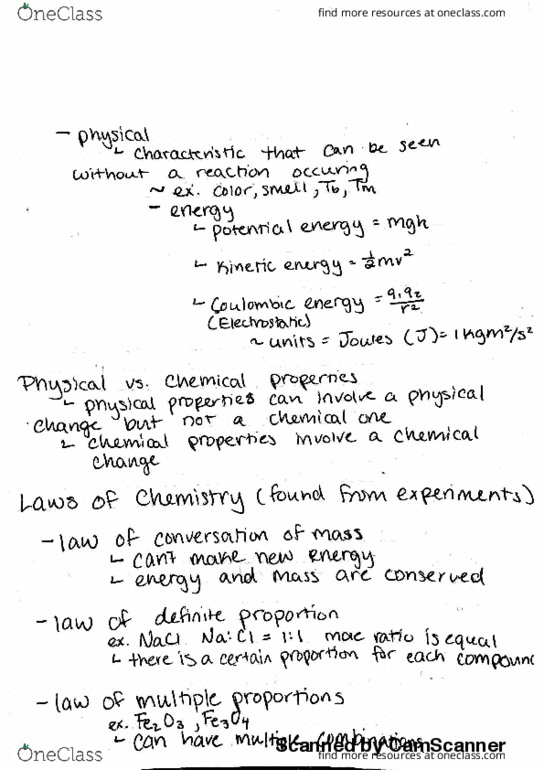 OneClass
find more resources at oneclass.com
- physical
↳ characteristic that can be seen
without a reaction occuring
~ ex. color, smell, Tb, Tm
- energy
↳ potential energy = mgh
↳ kinetic energy = ½mv²
↳ Coulombic energy = q₁q₂/r²
(Electrostatic)
~ units = Joules (J) = 1 kgm²/s²
Physical vs. Chemical properties
↳ physical properties can involve a physical
change but not a chemical one
↳ chemical properties involve a chemical
change
Laws of Chemistry (found from experiments)
- law of conversation of mass
↳ can't make new energy
↳ energy and mass are conserved
- law of definite proportion
ex. NaCl Na:Cl = 1:1 ratio is equal
↳ there is a certain proportion for each compound
- law of multiple proportions
ex. Fe₂O₃, Fe₃O₄
↳ can have multiple combinations
Scanned by CamScanner
OneClass
find more resources at oneclass.com